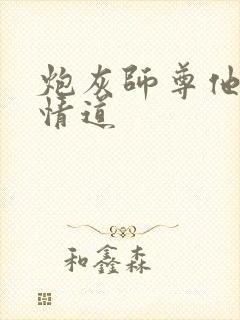 炮灰師尊他
情道
和鑫森